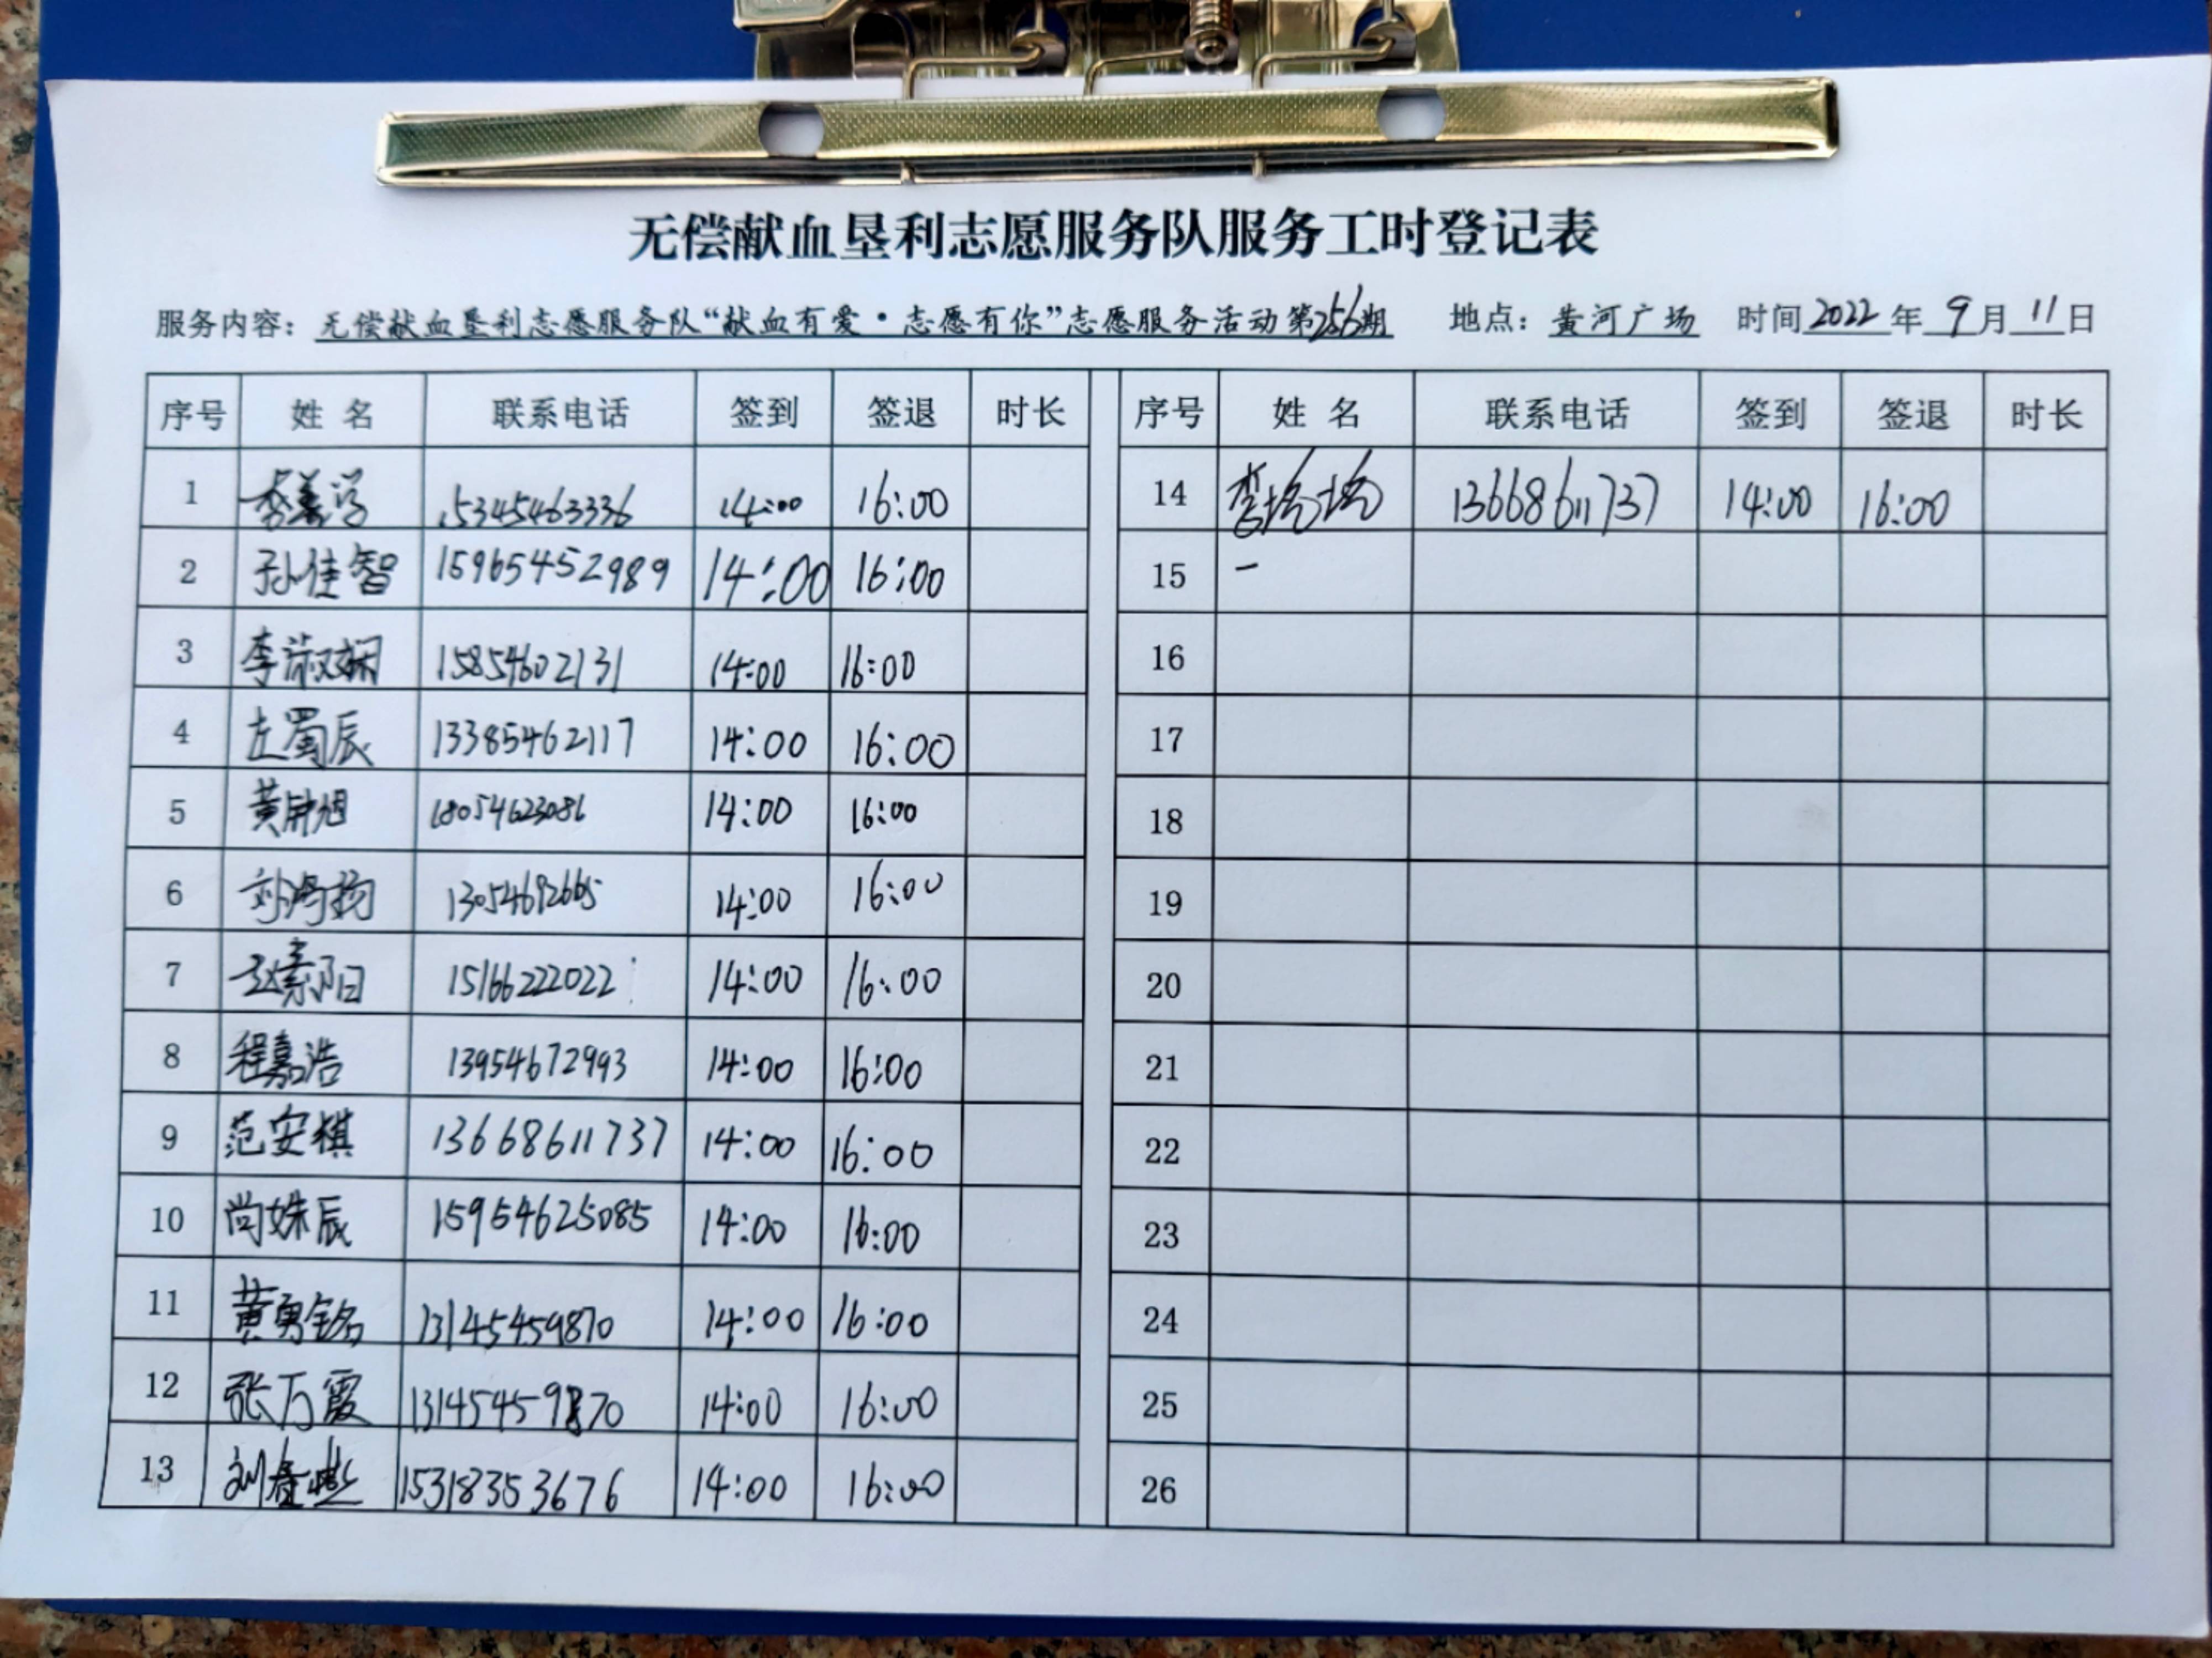 无偿献血垦利志愿服务队服务工时登记表
服务内容：无偿献血垦利志愿服务队“献血有爱·志愿有你”志愿服务活动第256期 地点：黄河广场 时间2022年9月11日
序号 姓名 联系电话 签到 签退 时长 序号 姓名 联系电话 签到 签退 时长
1 15345463336 14:00 16:00 14 13668611737 14:00 16:00
2 孙佳智 15965452989 14:00 16:00 15
3 李淑娴 15854602131 14:00 16:00 16
4 左蜀辰 13385462117 14:00 16:00 17
5 18054623086 14:00 16:00 18
6 13054692665 14:00 16:00 19
7 15166222022 14:00 16:00 20
8 程嘉浩 13954672993 14:00 16:00 21
9 范安棋 13668611737 14:00 16:00 22
10 尚姝辰 15954625085 14:00 16:00 23
11 黄勇铭 13145459870 14:00 16:00 24
12 张万霞 13145459870 14:00 16:00 25
13 15318353676 14:00 16:00 26